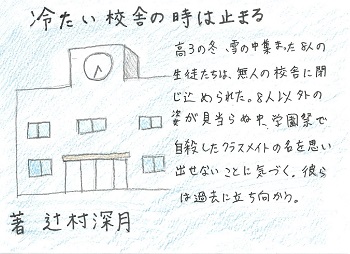 冷たい校舎の時は止まる
高3の冬、雪の中集まった8人の
生徒たちは、無人の校舎に閉
じ込められた。8人以外の
姿が見当らぬ中、学園祭で
自殺したクラスメイトの名を思い
出せないことに気づく。彼ら
は過去に立ち向かう。
著 辻村深月